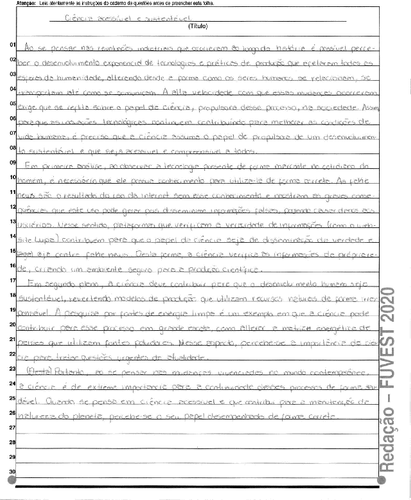 Atenção: Leia atentamente as instruções do caderno de questões antes de preencher esta folha.
Ciência acessível e sustentável
(Título)
01 Ao se pensar nas revoluções industriais que ocorreram ao longo da história é possível perce-
02 ber o desenvolvimento exponencial de tecnologias e práticas de produção que afetaram todas as
03 esferas da humanidade, alterando desde a forma como os seres humanos se relacionam, se
04 transportam até como se comunicam. A alta velocidade com que essas mudanças ocorreram
05 exige que se reflita sobre o papel da ciência, propulsora desse processo, na sociedade. Assim
06 para que as inovações tecnológicas continuem contribuindo para melhorar as condições de
07 vida humana, é preciso que a ciência assuma o papel de propulsora de um desenvolvimento
08 sustentável e que seja acessível e compreensível a todos.
09 Em primeira análise, ao observar a tecnologia presente de forma marcante no cotidiano do
10 homem, é necessário que ele possua conhecimento para utilizá-la de forma correta. As fake
11 news são o resultado do uso da internet sem esse conhecimento e mostram as graves conse-
12 quências que este uso pode gerar pois disseminam informações falsas, podendo causar danos aos
13 usuários. Nesse sentido, plataformas que verificam a veracidade de informações (como o web-
14 site Lupa) contribuem para que o papel da ciência seja de disseminadora da verdade e
15 haja contra fake news. Desta forma, a ciência verifica as informações de
16 criando um ambiente seguro para a produção científica.
17 Em segundo plano, a ciência deve contribuir para que o desenvolvimento humano seja
18 sustentável, revertendo modelos de produção que utilizam recursos naturais de forma irres-
19 ponsável. A pesquisa por fontes de energia limpa é um exemplo em que a ciência pode
20 contribuir para esse processo em grande escala como alterar a matriz energética de
21 países que utilizam fontes poluidoras. Nesse aspecto, percebe-se a importância da ciên-
22 cia para tratar questões urgentes da atualidade.
23 Portanto, ao se pensar nas mudanças vivenciadas no mundo contemporâneo,
24 a ciência é de extrema importância para a continuidade desses processos de forma sau-
25 dável. Quando se pensa em ciência acessível e que contribui para a manutenção da
26 natureza do planeta, percebe-se o seu papel desempenhado de forma correta.
27
28
29
30
Redação – FUVEST 2020